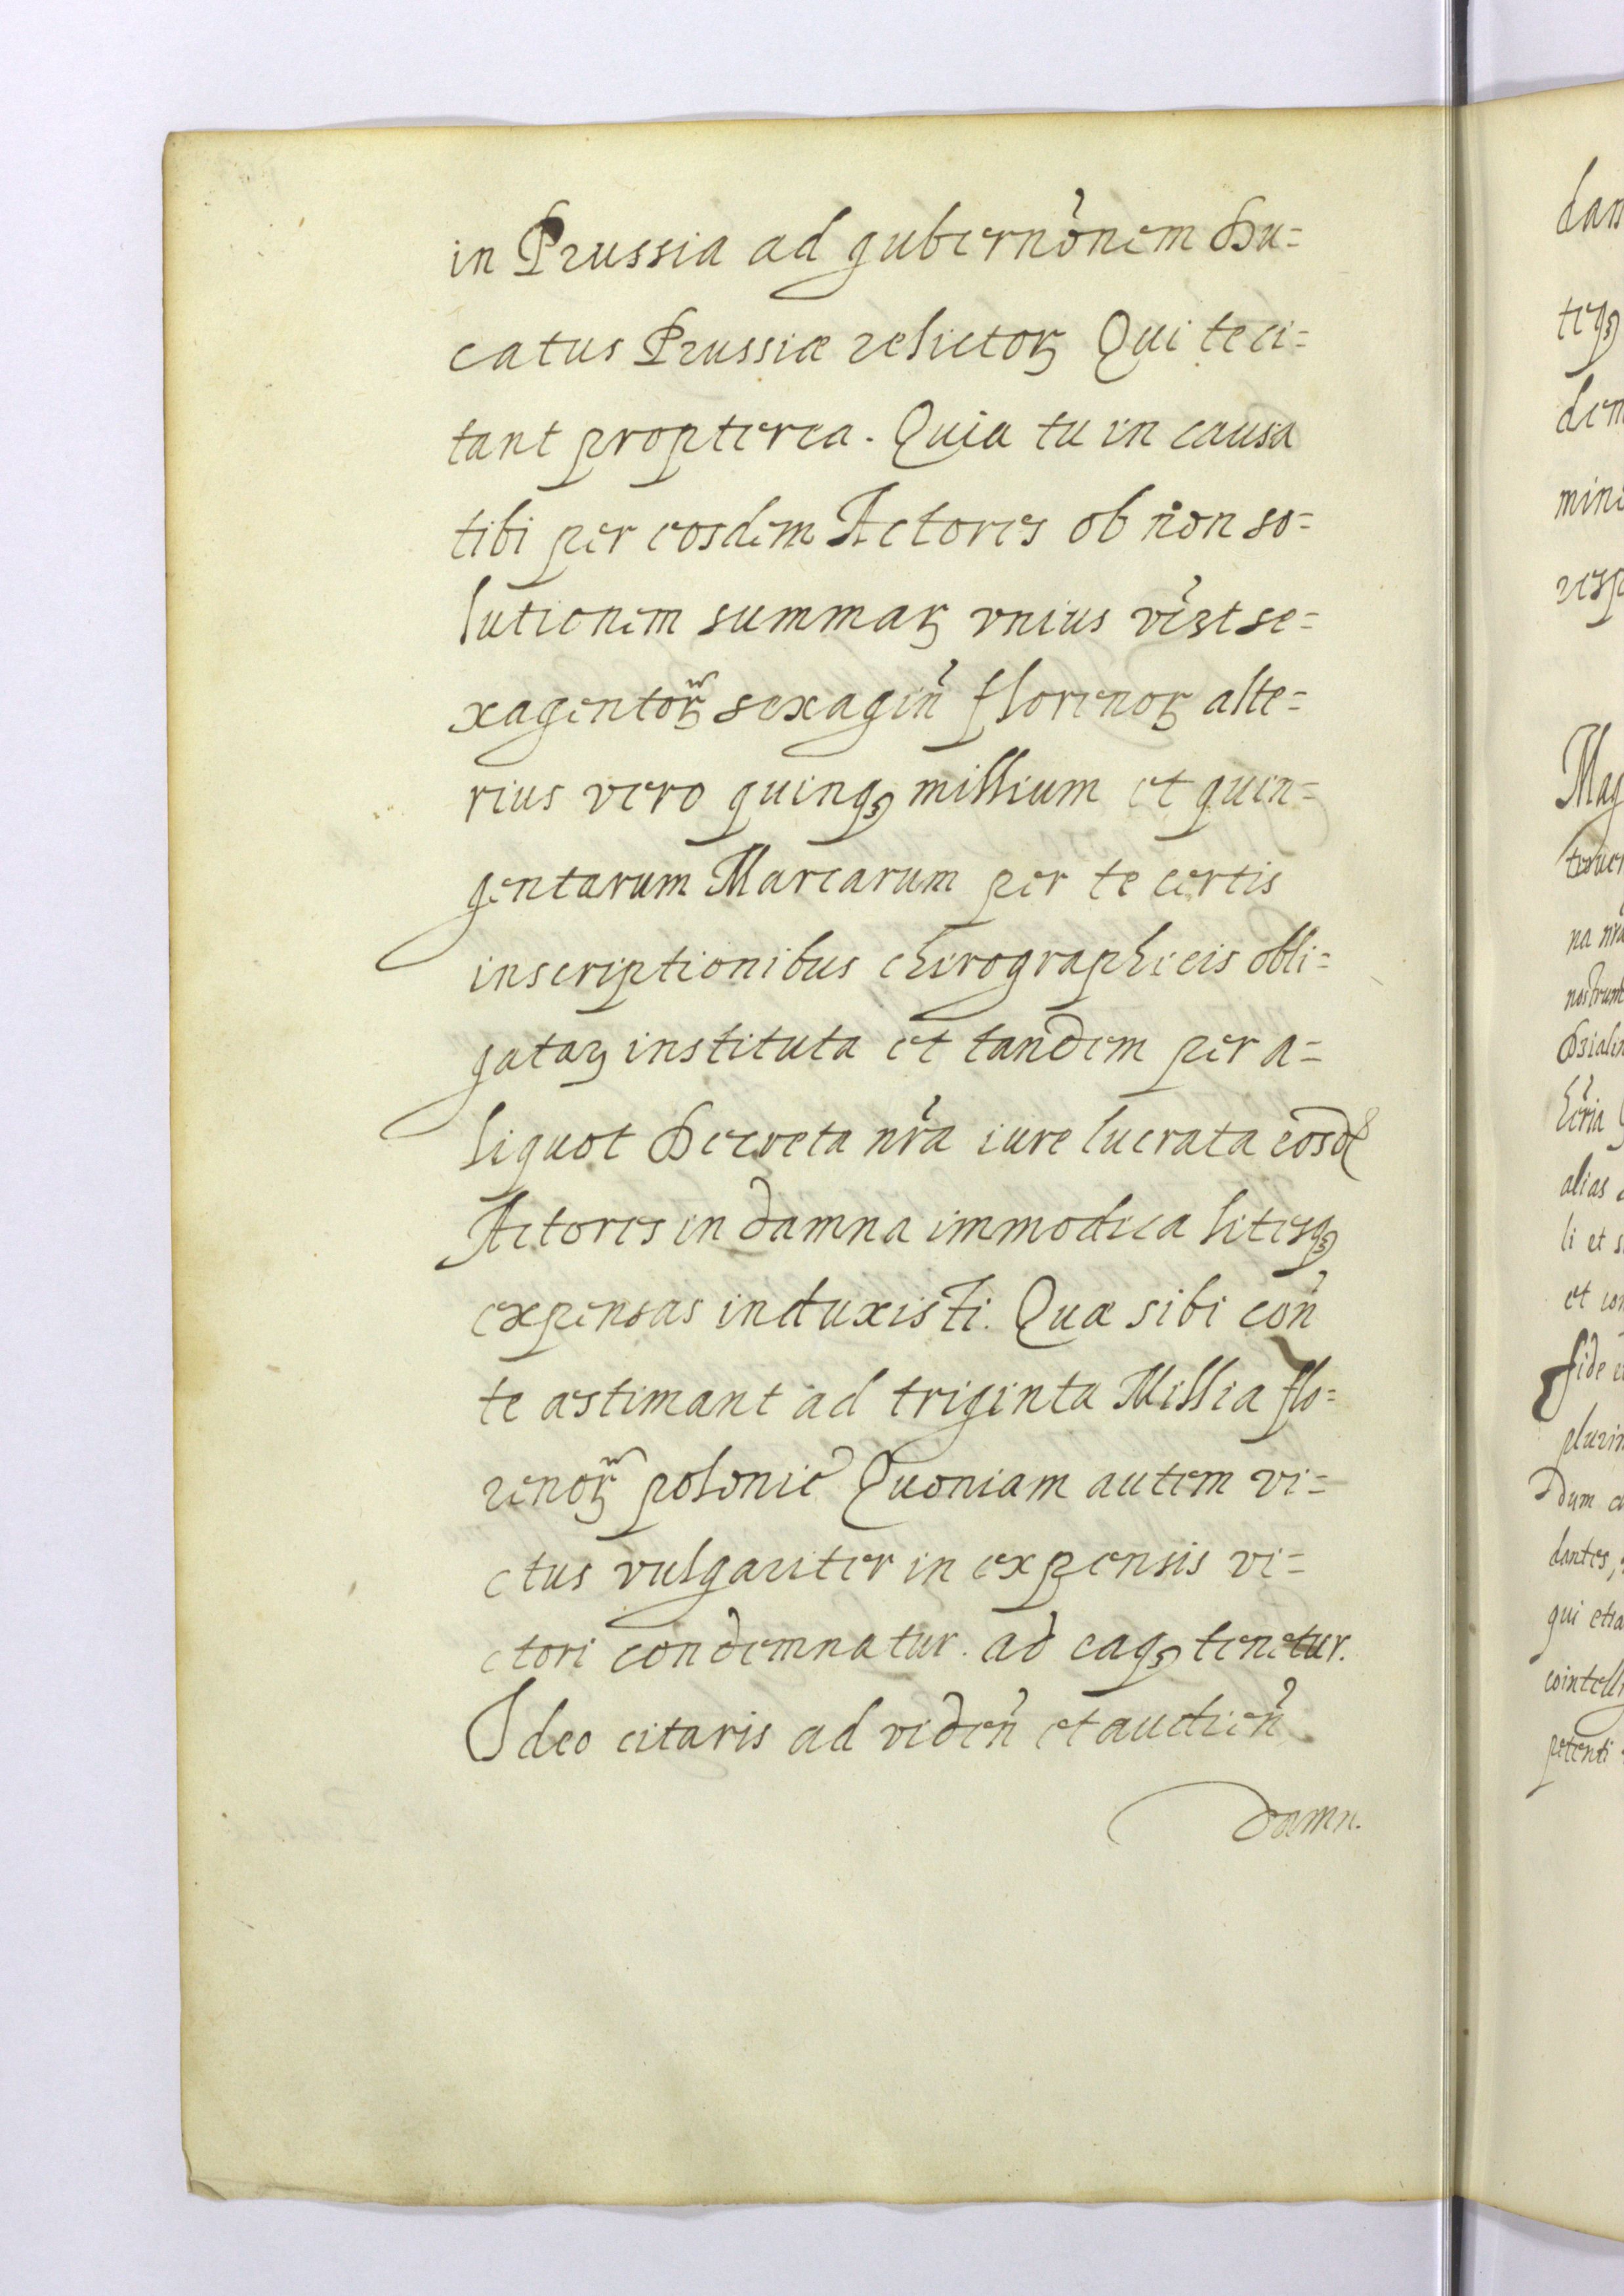 in Prussia ad gubernõnem Du=
catus Prussiæ relictoꝝ Qui te ci=
tant propterea. Quia tu in causa
tibi per eosdem Actores ob non so=
lutionem summaꝝ vnius vizt se=
xagentoꝝ sexagin̄ florenoꝝ alte=
rius vero quinqꝫ millium et quin=
gentarum Marcarum per te certis
inscriptionibus chirographicis obli=
gataꝝ instituta et tandem per a=
liquot Decreta nr̄a iure lucrata eosd
Actores in damna immodica litisqꝫ
expensas induxisti. Quæ sibi con̄
te æstimant ad triginta Millia flo=
renoꝝ polonic̄ Quoniam autem vi=
ctus vulgariter in expensis vi=
ctori condemnatur. ad eaqꝫ tenetur.
Ideo citaris ad viden̄ et audien̄
damn.
dan
teqꝫ
dem
mini
resp
Mag
na nr̄a
alias
li et s
et con
fide
plurim
dum
dantes,
qui etia
cointelli
petenti